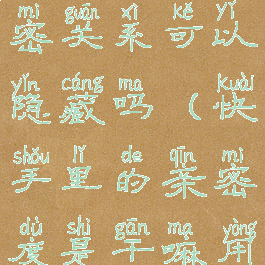 mì guān xì kě yǐ
密关系可以
yǐn cáng ma kuài
隐藏吗（快
shǒu lǐ de qīn mì
手里的亲密
dù shì gān ma yòng
度是干嘛用